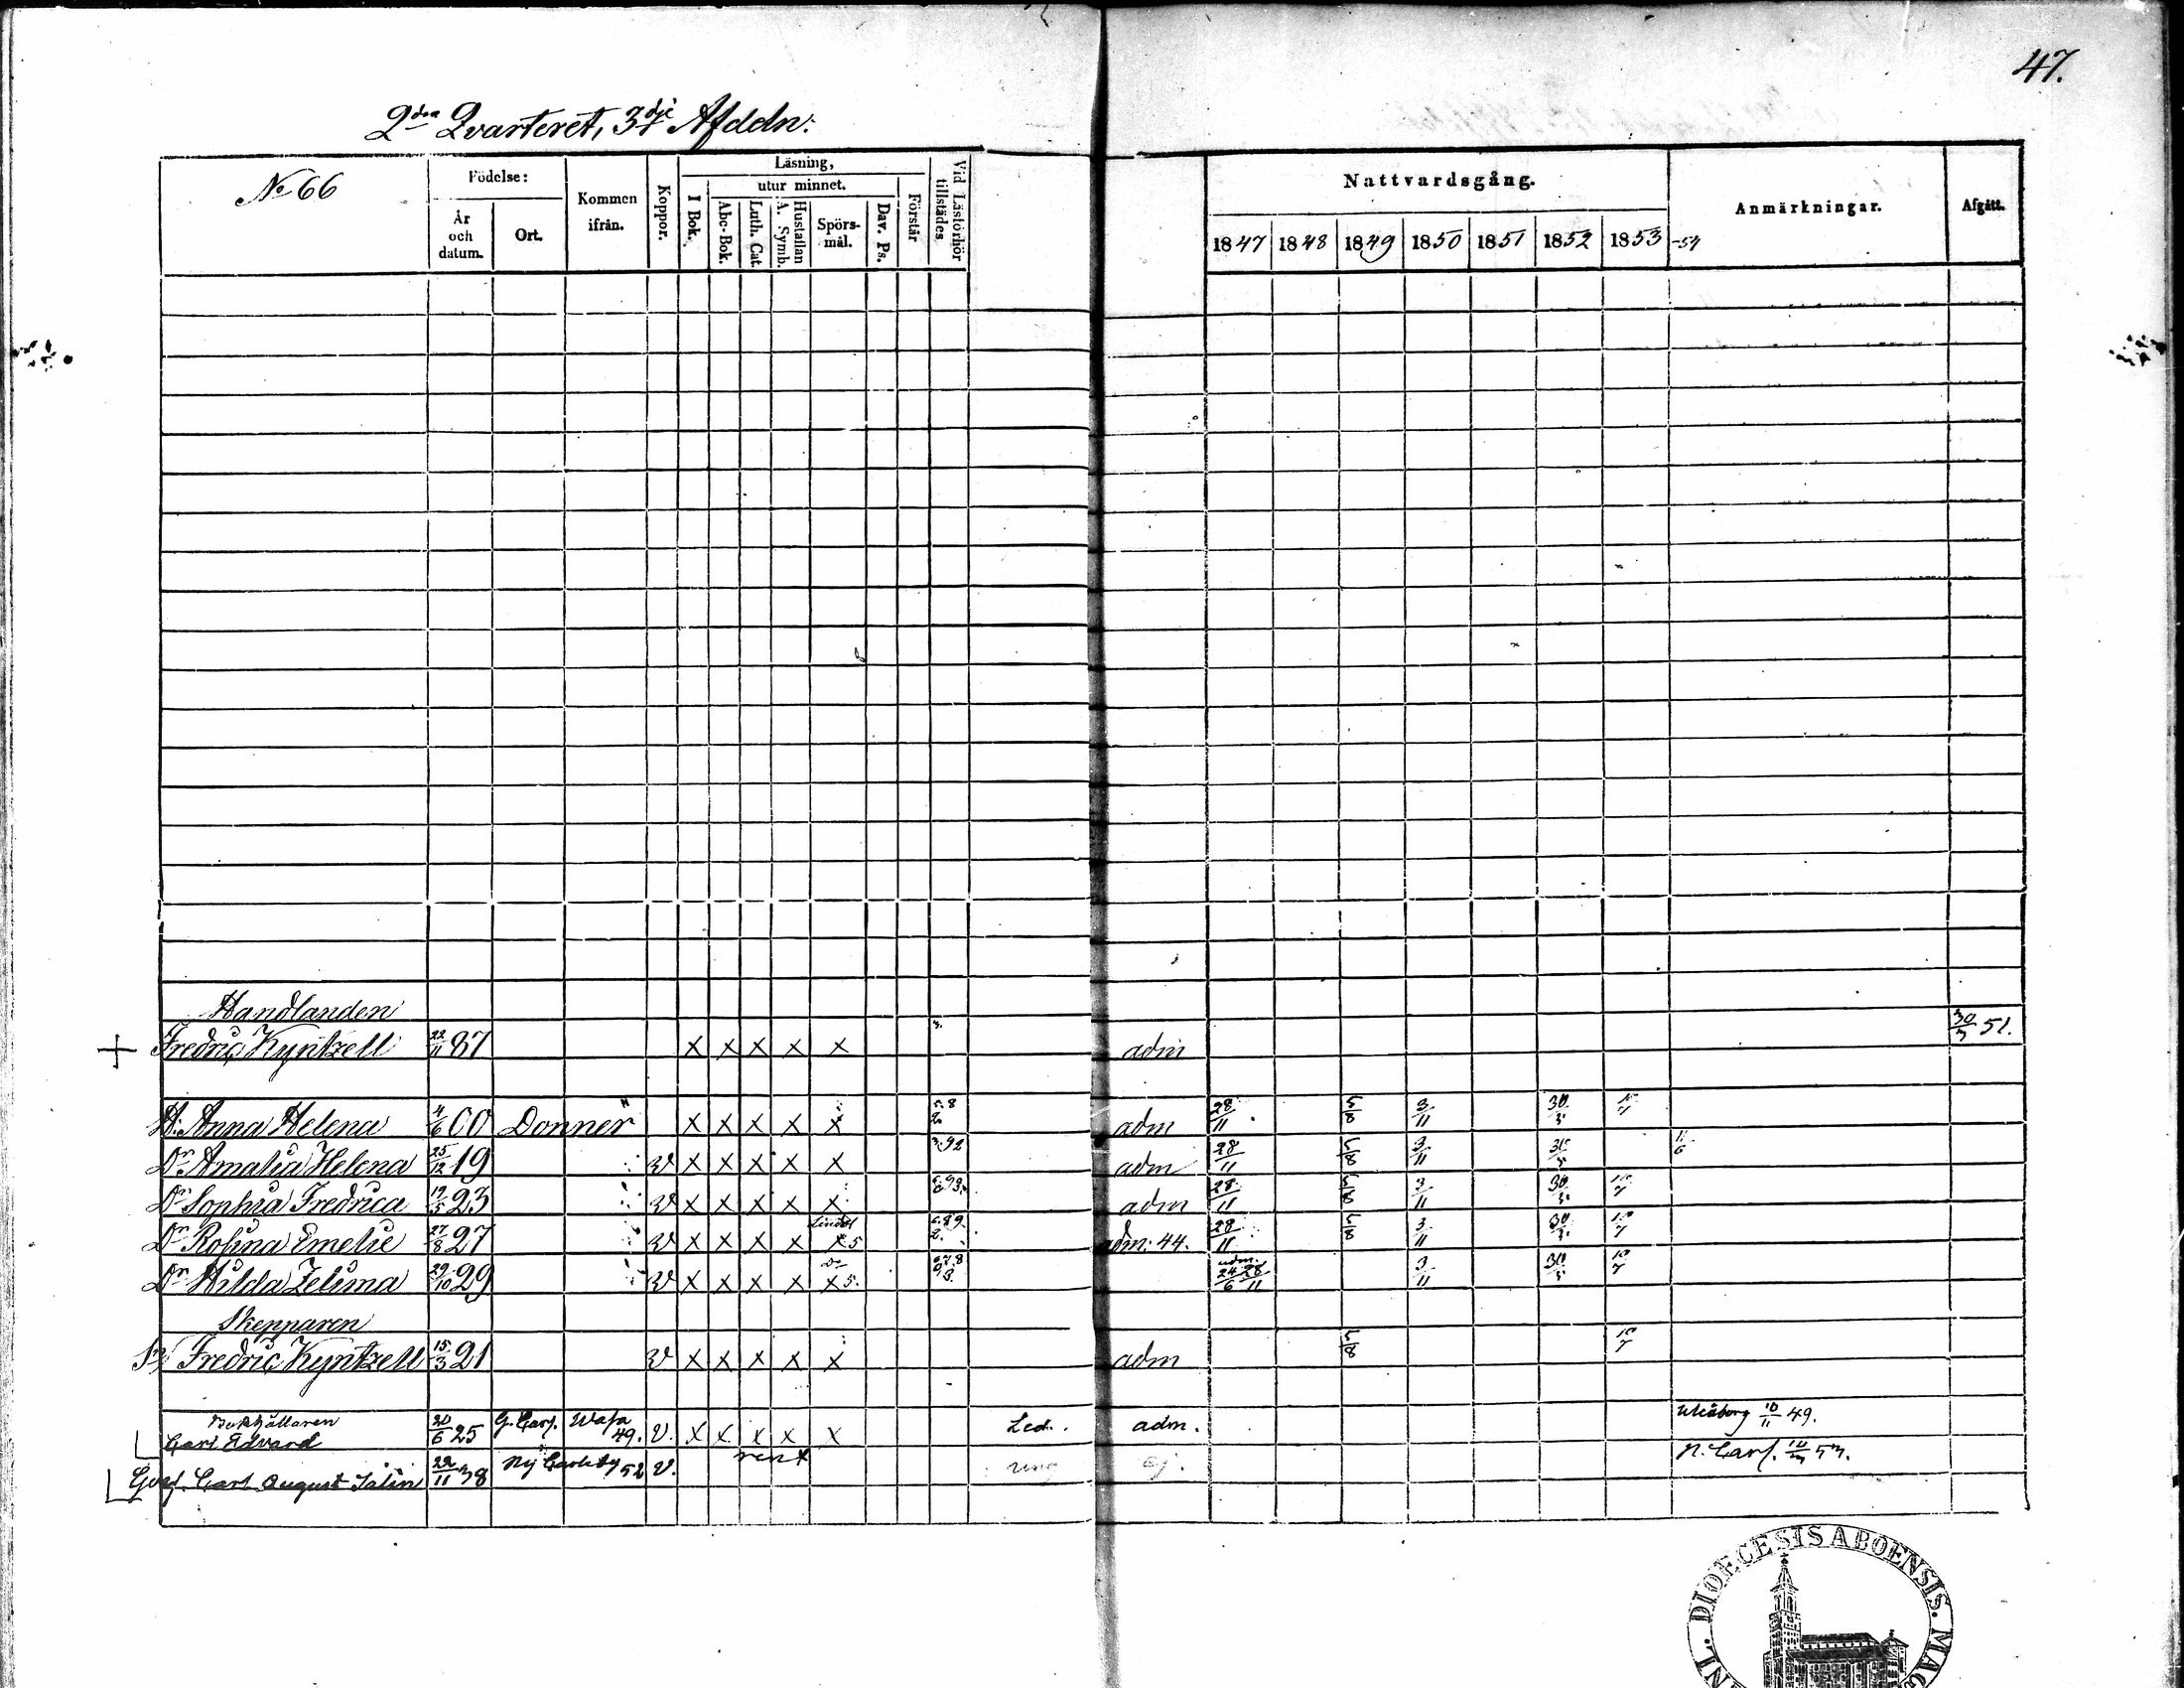 47.
2dra Qvarteret, 3dje Afdeln:
No 66
Födelse:
År och datum.
Ort.
Kommen ifrån.
Koppor.
Läsning,
I Bok.
utur minnet.
Abc-Bok.
Luth. Cat.
Hustaflan A. Symb.
Spörs-mål.
Dav. Ps.
Förstår
Vid Läsförhör tillstädes
Nattvardsgång.
1847 1848 1849 1850 1851 1852 1853 -54
Anmärkningar.
Afgått.
Handlanden
Fredric Kyntzell 22/11 87 x x x x x adm 30/3 51.
H. Anna Helena 4/6 00 Donner x x x x x adm 28/11 5/8 3/11 30/5
Dr Amalia Helena 25/12 19 v x x x x x adm 28/11 5/8 3/11 30/5 11/6
Dr Sophia Fredrica 19/5 23 v x x x x x adm 28/11 5/8 3/11 30/5
Dr Rosina Emelie 27/8 27 v x x x x x 5 adm. 44. 28/11 5/8 3/11 30/5
Dr Hilda Zelima 29/10 29 v x x x x x 5. adm. 24/6 28/11 3/11 30/5
Skepparen
Sn Fredric Kyntzell 15/3 21 v x x x x x adm 5/8
Bokhållaren
Carl Edvard 20/6 25 G. Carl. Wasa 49. v. x x x x x Led. adm. Uleåborg 10/11 49.
Carl August 22/11 38 Ny Carleby 52 v. ren x ung ej. N. Carl. 53.
DIOECESIS ABOENSIS.